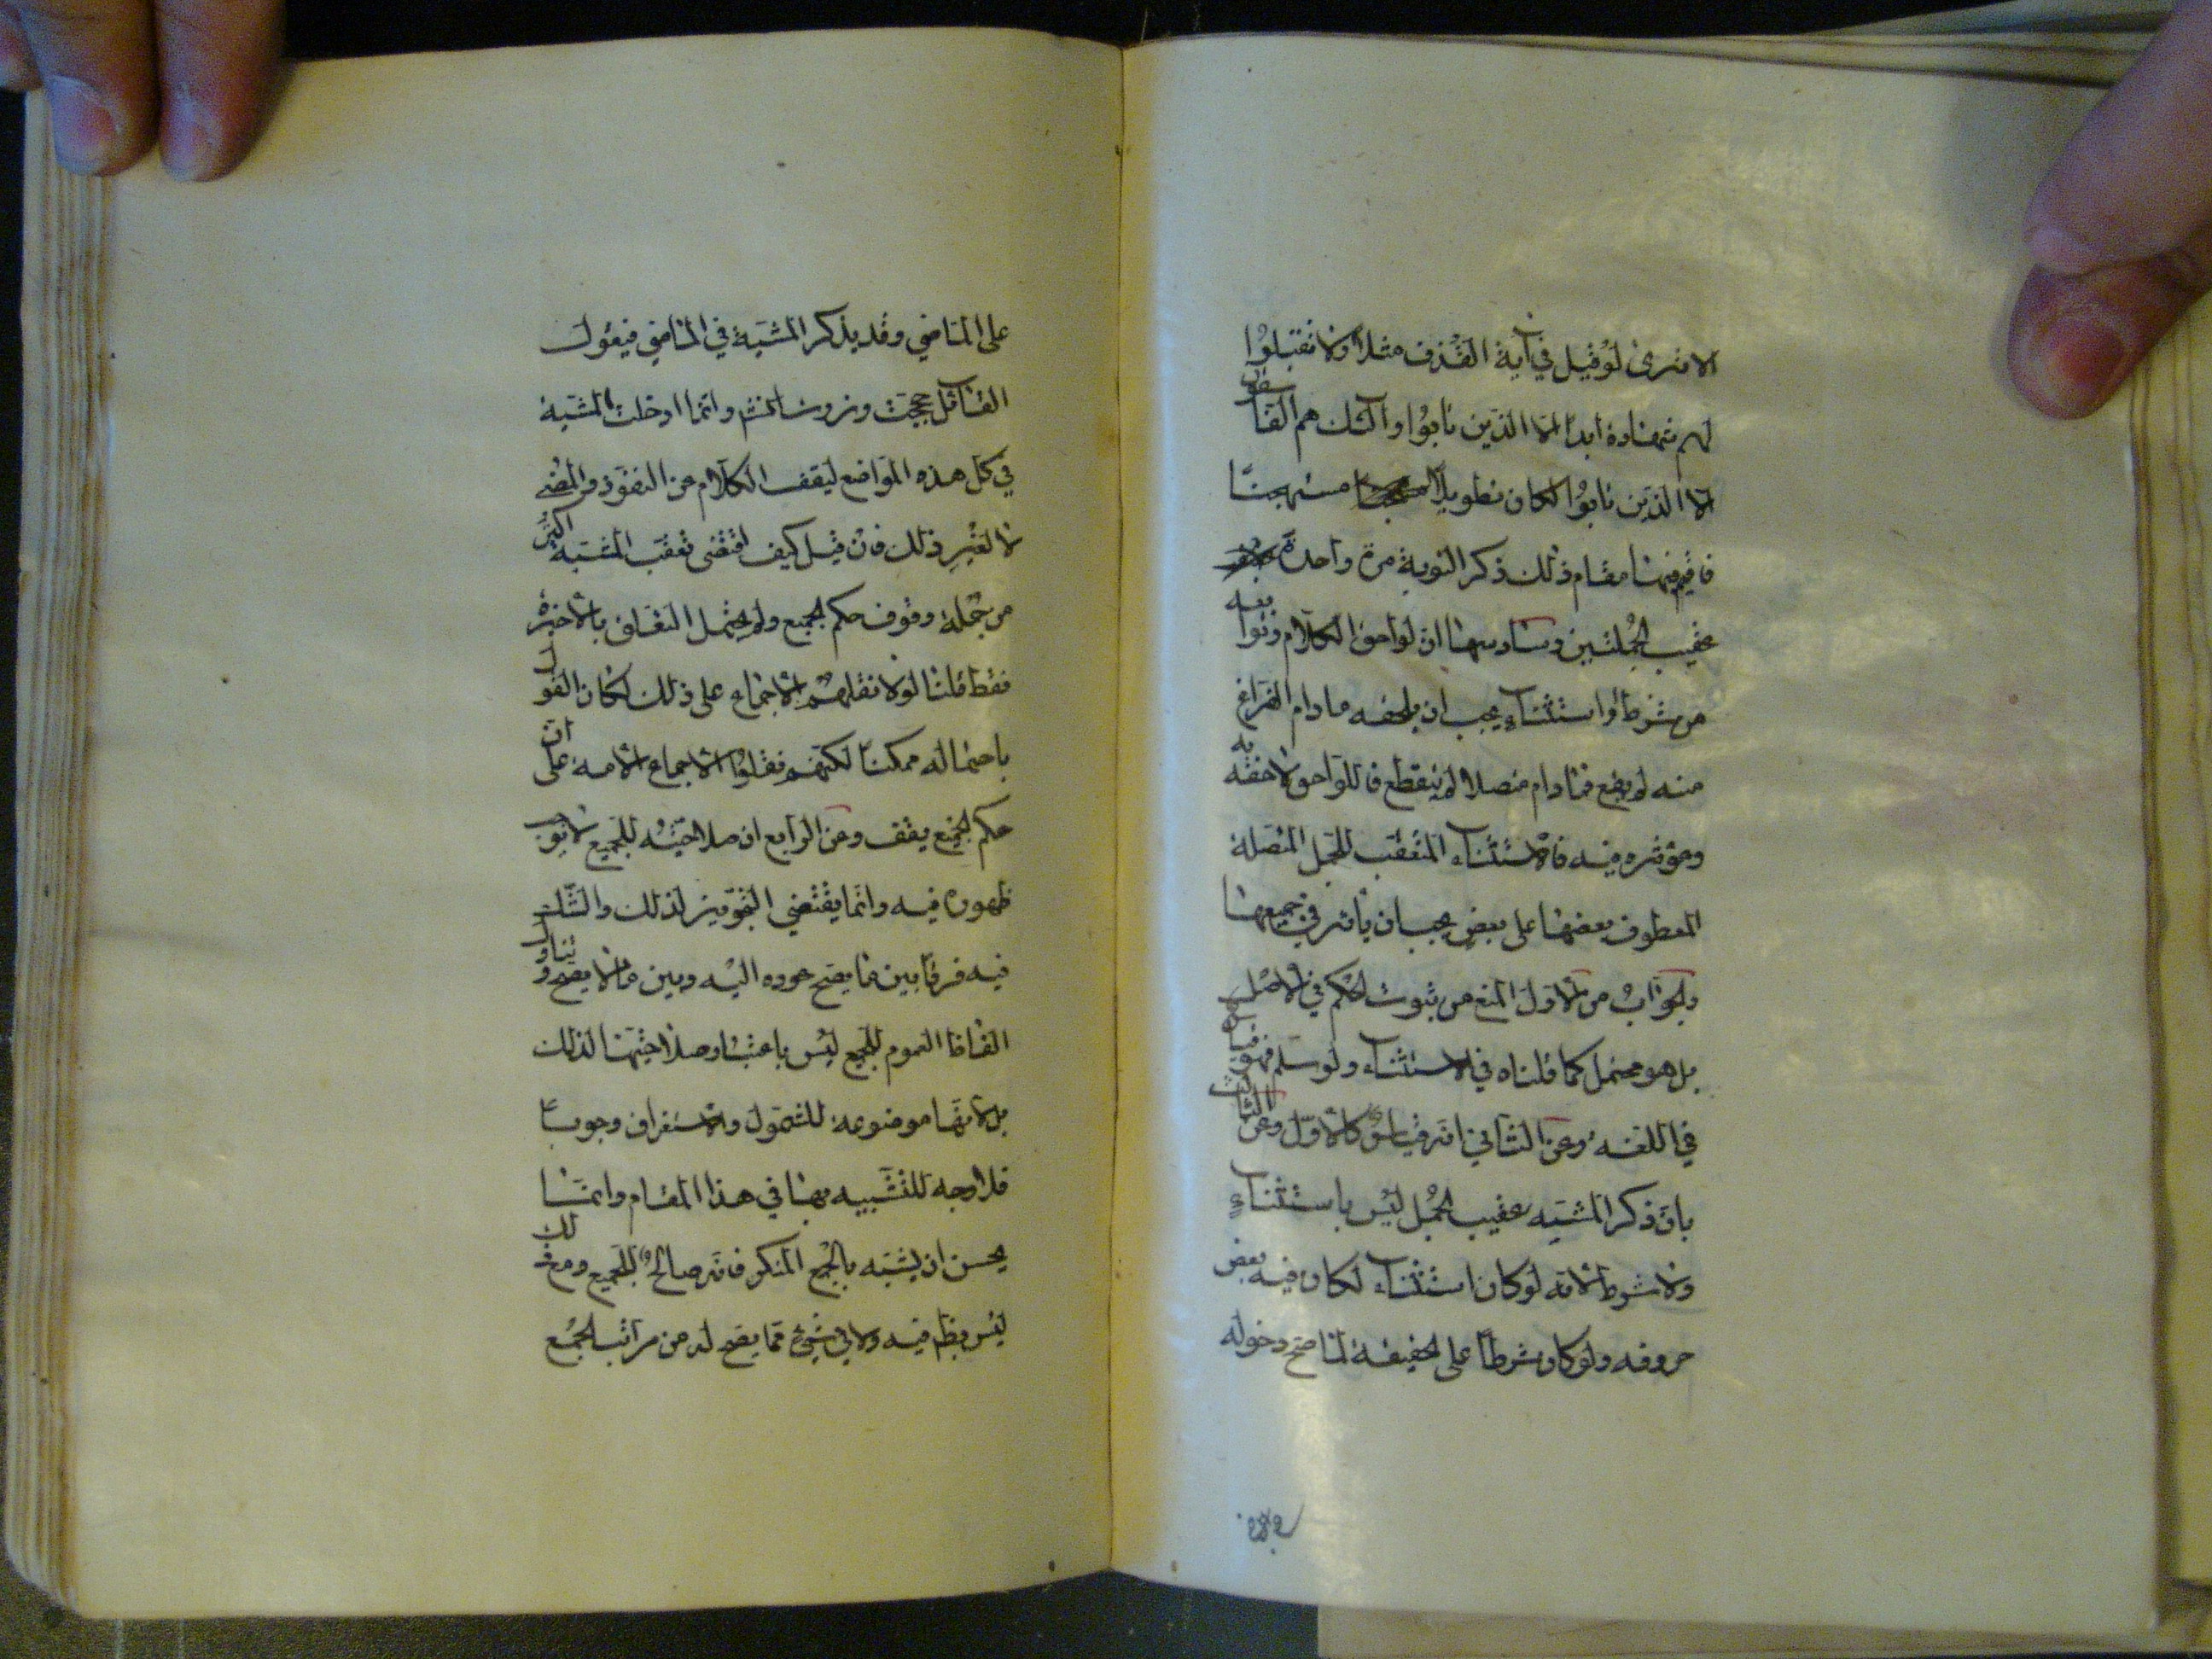 الا ترى لو قيل في آية القذف مثلا ولا تقبلوا
لهم شهادة ابدا الا الذين تابوا واولئك هم الفاسقون
الا الذين تابوا لكان تطويلا مستهجنا
فاقيم فيها مقام ذلك ذكر التوبة مرة واحدة
عقيب الجملتين وسادسها ان لواحق الكلام وتوابعه
من شرط او استثناء يجب ان يلحقه ما دام الفراغ
منه لم يقع فما دام متصلا لم ينقطع فاللواحق لاحقة به
ومؤثرة فيه فالاستثناء المتعقب للجمل المتصلة
المعطوف بعضها على بعض يجب ان يأثر في جميعها
والجواب من الاول المنع من ثبوت الحكم في الاصل
بل هو محتمل كما قلناه في الاستثناء ولو سلم فهو قياس
في اللغة وعن الثاني انه قياس كالاول وعن الثالث
بان ذكر المشية عقيب الجمل ليس باستثناء
ولا شرط لانه لو كان استثناء لكان فيه بعض
حروفه ولو كان شرطا على الحقيقة لما صح دخوله
على الماضي
على الماضي وقد يذكر المشية في الماضي فيقول
القائل حججت وزرت انشم وانما ادخلت المشية
في كل هذه المواضع ليقف الكلام عن النفوذ والمضي
لا لغير ذلك فان قيل كيف اقتضى تعقب المشية اكثر
من جملة وقوف حكم الجميع ولم يحتمل التعلق بالاخيرة
فقط قلنا لولا نقلهم الاجماع على ذلك لكان القول
باحتماله ممكنا لكنهم نقلوا الاجماع الامة على ان
حكم الجميع يقف وعن الرابع ان صلاحيته للجميع لا توجب
ظهوره فيه وانما يقتضي التجويز لذلك والشك
فيه فرقا بين ما يصح عوده اليه وبين ما لا يصح وتناول
الفاظ العموم للجميع ليس باعتبار صلاحيتها لذلك
بل لانها موضوعة للشمول والاستغراق وجوبا
فلا وجه للتشبيه بها في هذا المقام وانما
يحسن ان يشبه بالجمع المنكر فانه صالح للجميع ومع ذلك
ليس بظ فيه ولا في شيئ مما يصح له من مراتب الجمع